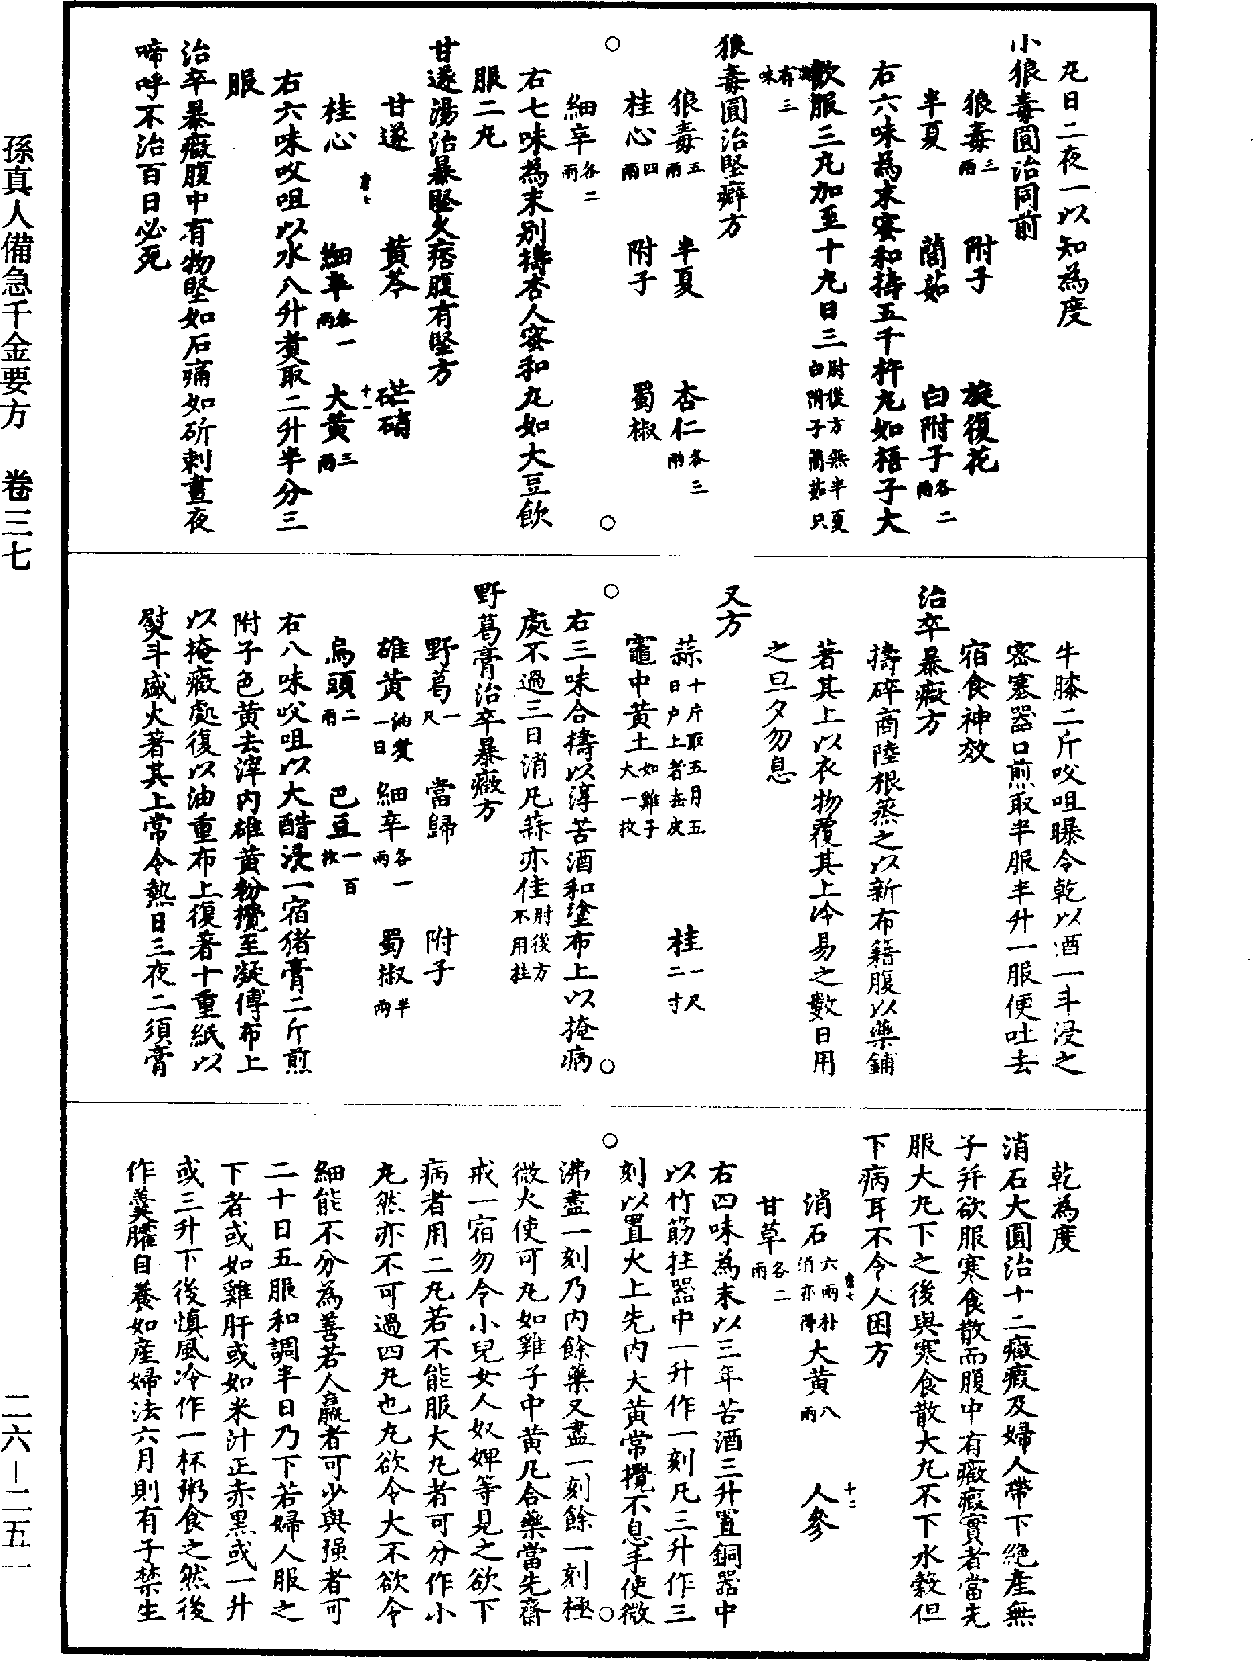 孫真人備急千金要方 卷三七
二六-二五一
丸日二夜一以知為度
小狼毒圓治同前
狼毒三兩 附子 旋復花
半夏 䕡茹 白附子各二兩
右六味為末蜜和擣五千杵丸如梧子大
飲服三丸加至十丸日三肘後方無半夏白附子䕡茹只有三味
狼毒圓治堅癖方
狼毒五兩 半夏 杏仁各三兩
桂心四兩 附子 蜀椒
細辛各二兩
右七味為末別擣杏人蜜和丸如大豆飲
服二丸
甘遂湯治暴堅久痞腹有堅方
甘遂 黃芩 芒硝
桂心 細辛各一兩 大黃三兩
右六味㕮咀以水八升煑取二升半分三
服
治卒暴癥腹中有物堅如石痛如斫刺晝夜
啼呼不治百日必死
牛膝二斤㕮咀曝令乾以酒一斗浸之
密塞器口煎取半服半升一服便吐去
宿食神效
治卒暴癥方
擣碎商陸根蒸之以新布籍腹以藥鋪
著其上以衣物覆其上冷易之數日用
之旦夕勿息
又方
蒜十斤取五月五日户上者去皮 桂一尺二寸
竈中黃土如雞子大一枚
右三味合擣以淳苦酒和塗布上以掩病
處不過三日消凡蒜亦佳肘後方不用桂
野葛膏治卒暴癥方
野葛一尺 當歸 附子
雄黃油煑一日 細辛各一兩 蜀椒半兩
烏頭二兩 巴豆一百枚
右八味㕮咀以大醋浸一宿猪膏二斤煎
附子色黃去滓内雄黃粉攪至凝傅布上
以掩癥處復以油重布上復著十重紙以
熨斗盛火著其上常令熱日三夜二須膏
乾為度
消石大圓治十二癥瘕及婦人帶下絶產無
子幷欲服寒食散而腹中有癥瘕實者當先
服大丸下之後與寒食散大丸不下水穀但
下病耳不令人困方
消石六兩朴消亦得 大黃八兩 人參
甘草各二兩
右四味為末以三年苦酒三升置銅器中
以竹筯拄器中一升作一刻凡三升作三
刻以置火上先内大黃常攪不息手使微
沸盡一刻乃内餘藥又盡一刻餘一刻極
微火使可丸如雞子中黃凡合藥當先齋
戒一宿勿令小兒女人奴婢等見之欲下
病者用二丸若不能服大丸者可分作小
丸然亦不可過四丸也丸欲令大不欲令
細能不分為善若人羸者可少與强者可
二十日五服和調半日乃下若婦人服之
下者或如雞肝或如米汁正赤黑或一升
或三升下後慎風冷作一杯粥食之然後
作羹臛自養如産婦法六月則有子禁生